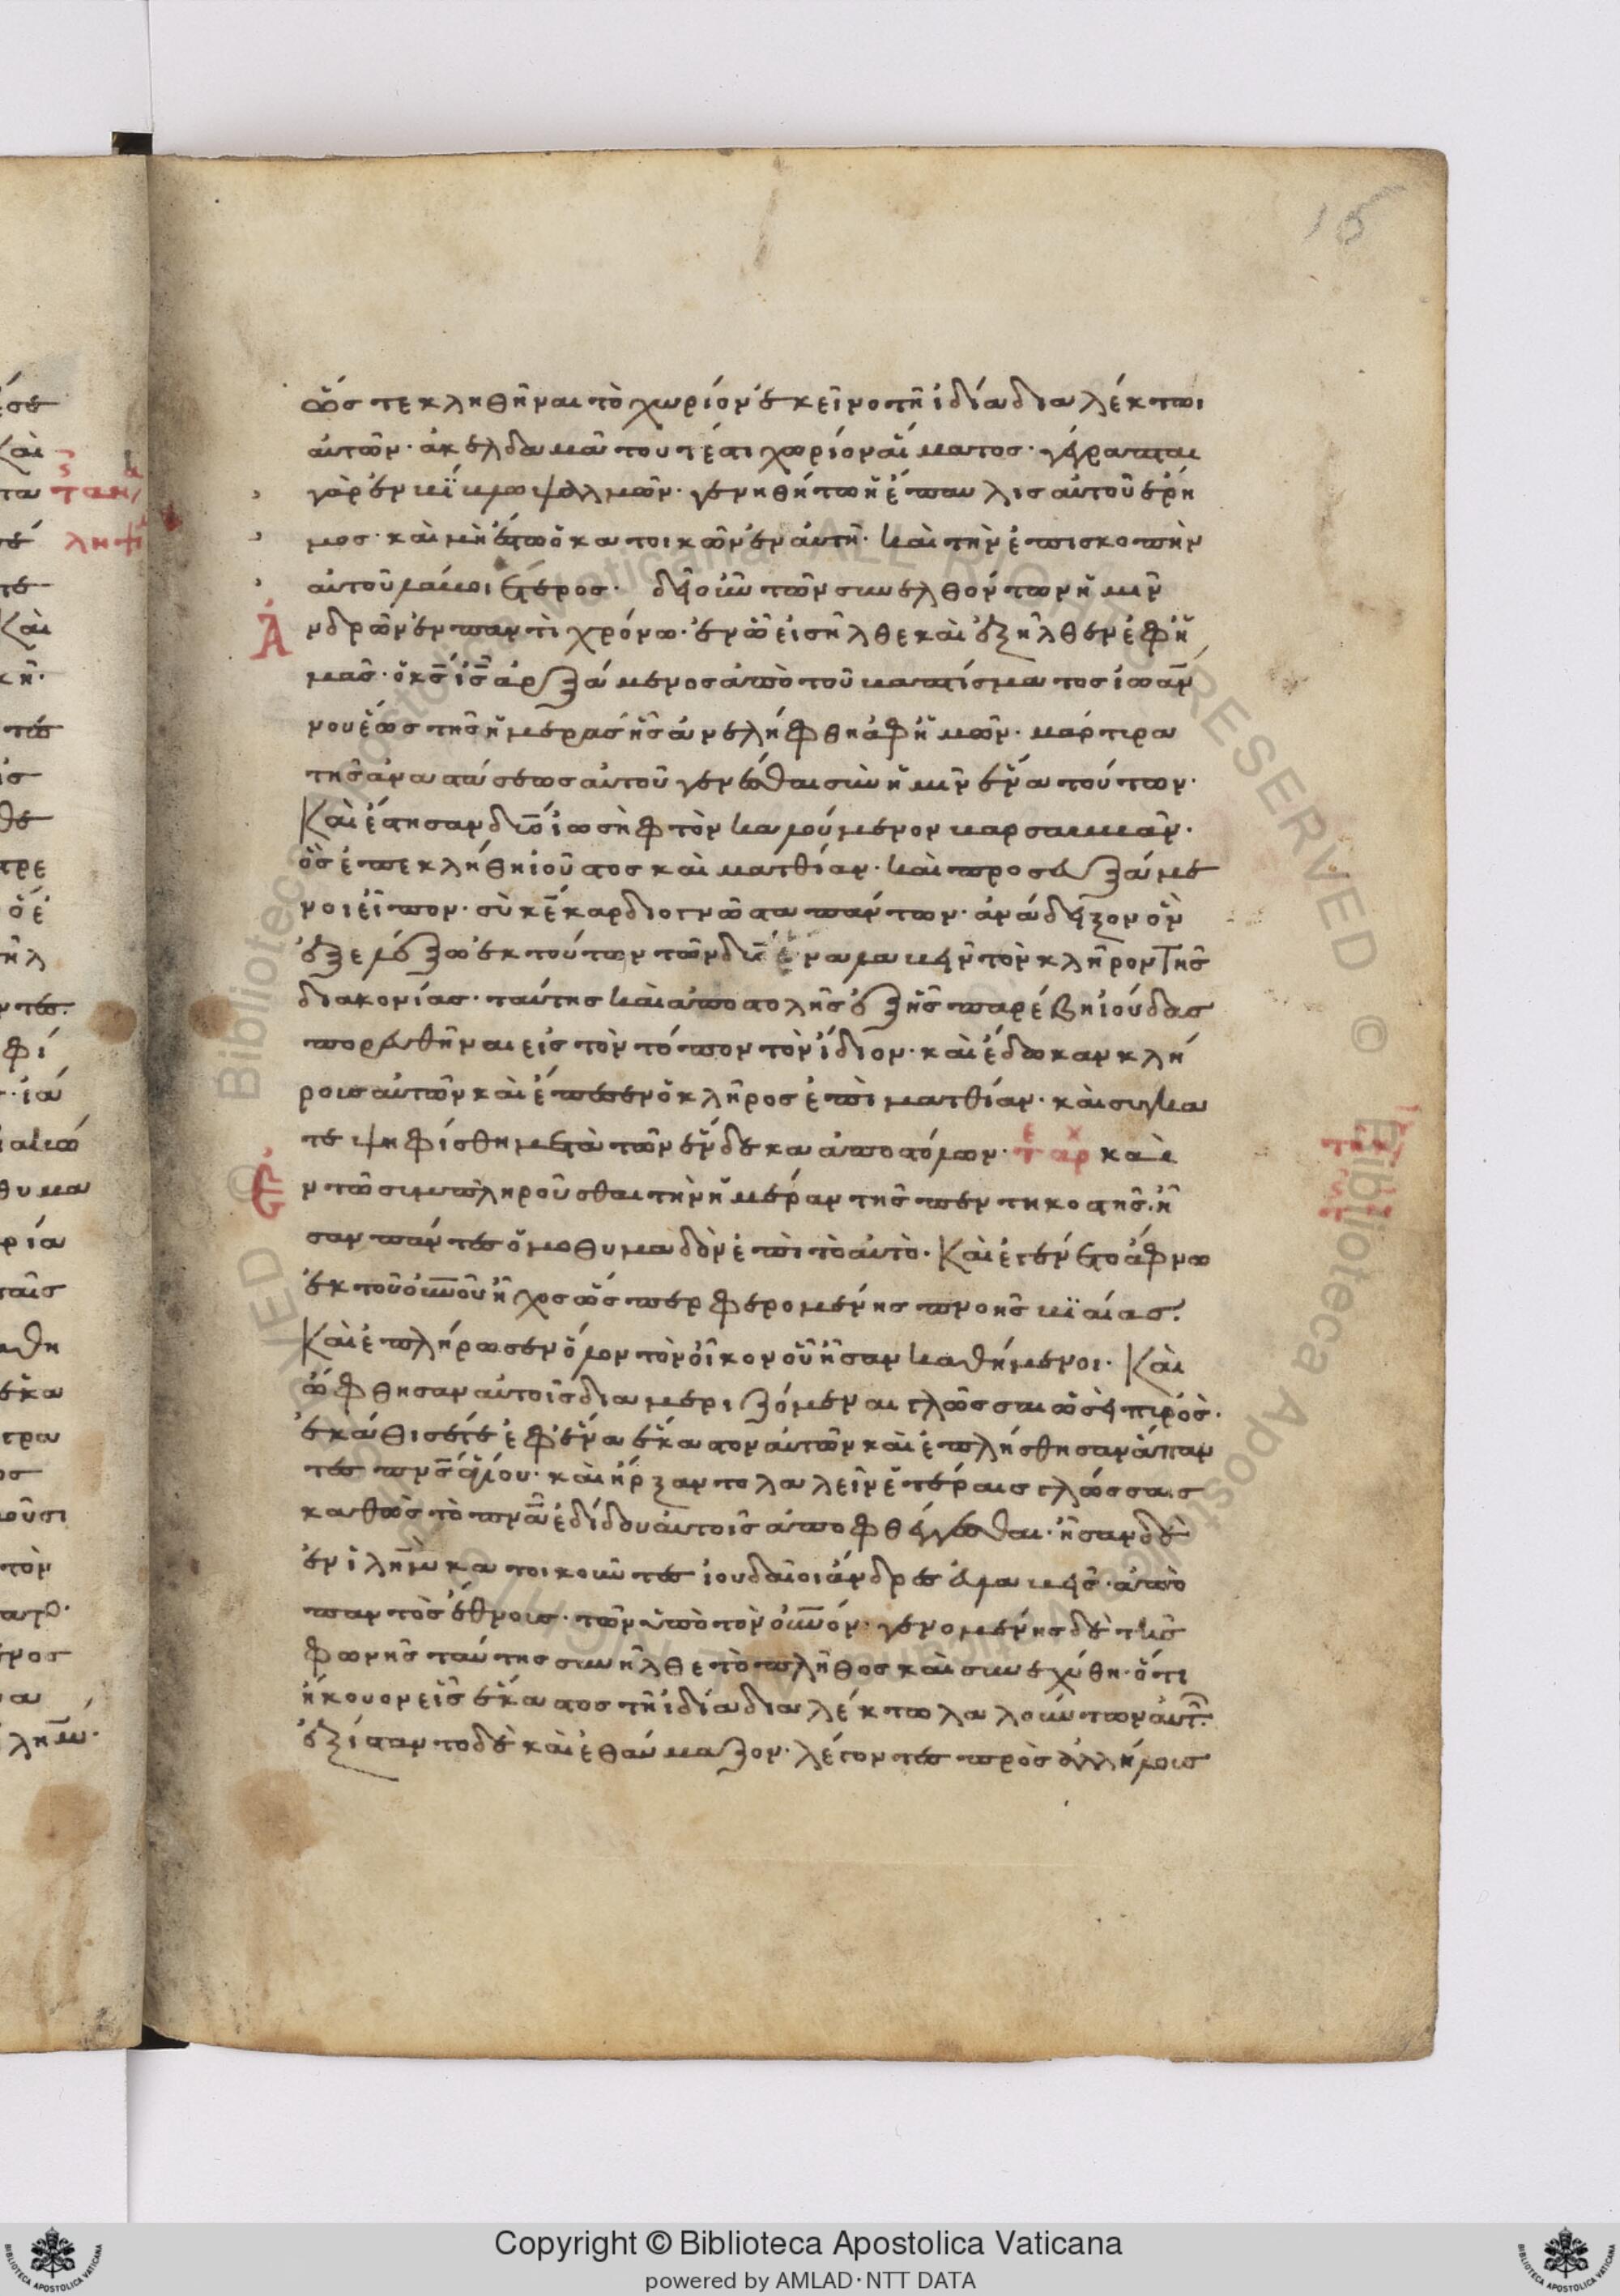 15
ὥστε κληθῆναι τὸ χωρίον ἐκεῖνο τῆ ἰδία διαλέκτωι
αὐτῶν· ἀκελδαμᾶ τουτέστι χωρίον αἵματος· γέγραπται
γὰρ ἐν βίβλω ψαλμῶν· γενηθήτω ἡ ἔπαυλις αὐτοῦ ἔρη
μος· καὶ μὴ ἔστω ὁ κατοικῶν ἐν αὐτῆ· καὶ τὴν ἐπισκοπὴν
αὐτοῦ λάβοι ἕτερος· δεῖ οὖν τῶν συνελθόντων ἡμῖν
Ἀ νδρῶν ἐν παντὶ χρόνω· ἐν ὧ εἰσῆλθε καὶ ἐξῆλθεν ἐφ ἡ
μᾶς· ὁ κς ις ἀρξάμενος ἀπὸ τοῦ βαπτίσματος ἰωάν
νου ἕως τῆς ἡμέρας ἧς ἀνελήφθη ἀφ ἡμῶν· μάρτυρα
τῆς ἀναστάσεως αὐτοῦ γενέσθαι σὺν ἡμῖν ἕνα τούτων·
Καὶ ἔστησαν δύο ἰωσὴφ τὸν καλούμενον βαρσαββᾶν·
ὃς ἐπεκλήθη ἰοῦστος καὶ ματθίαν· καὶ προσευξάμε
νοι εἶπον· σὺ κε καρδιογνῶστα πάντων· ἀνάδειξον ὃν
ἐξελέξω ἐκ τούτων τῶν δύο ἕνα λαβεῖν τὸν κλῆρον τῆς
διακονίας· ταύτης καὶ ἀποστολῆς ἐξ ἧς παρέβη ἰούδας
πορευθῆναι εἰς τὸν τόπον τὸν ἴδιον· καὶ ἔδωκαν κλή
ρους αὐτῶν καὶ ἔπεσεν ὁ κλῆρος ἐπὶ ματθίαν· καὶ συγκα
τεψηφίσθη μετὰ τῶν ἕνδεκα ἀποστόλων· καὶ ἐ
Ἐ ν τῶ συμπληροῦσθαι τὴν ἡμέραν τῆς πεντηκοστῆς· ἦ
σαν πάντες ὁμοθυμαδὸν ἐπὶ τὸ αὐτὸ· Καὶ ἐγένετο ἄφνω
ἐκ τοῦ οὐνοῦ ἦχος ὥσπερ φερομένης πνοῆς βιαίας·
Καὶ ἐπλήρωσεν ὅλον τὸν οἶκον οὗ ἦσαν καθήμενοι· Καὶ
ὤφθησαν αὐτοῖς διαμεριζόμεναι γλῶσσαι ὡσεὶ πυρός·
ἐκάθισέ τε ἐφ ἕνα ἕκαστον αὐτῶν καὶ ἐπλήσθησαν ἅπαν
τες πνς ἁγίου· καὶ ἤρξαντο λαλεῖν ἑτέραις γλώσσαις
καθὼς τὸ πνα ἐδίδου αὐτοῖς ἀποφθέγγεσθαι· ἦσαν δὲ
ἐν ιλημ κατοικοῦντες ἰουδαῖοι ἄνδρες εὐλαβεῖς· ἀπὸ
παντὸς ἔθνους· τῶν ὑπὸ τὸν οὐνόν· γενομένης δὲ τῆς
φωνῆς ταύτης συνῆλθε τὸ πλῆθος καὶ συνεχύθη· ὅτι
ἤκουον εἷς ἕκαστος τῆ ἰδία διαλέκτω λαλούντων αὐτ
ἐξίσταντο δὲ καὶ ἐθαύμαζον· λέγοντες πρὸς ἀλλήλους
Copyright © Biblioteca Apostolica Vaticana
powered by AMLAD·NTT DATA